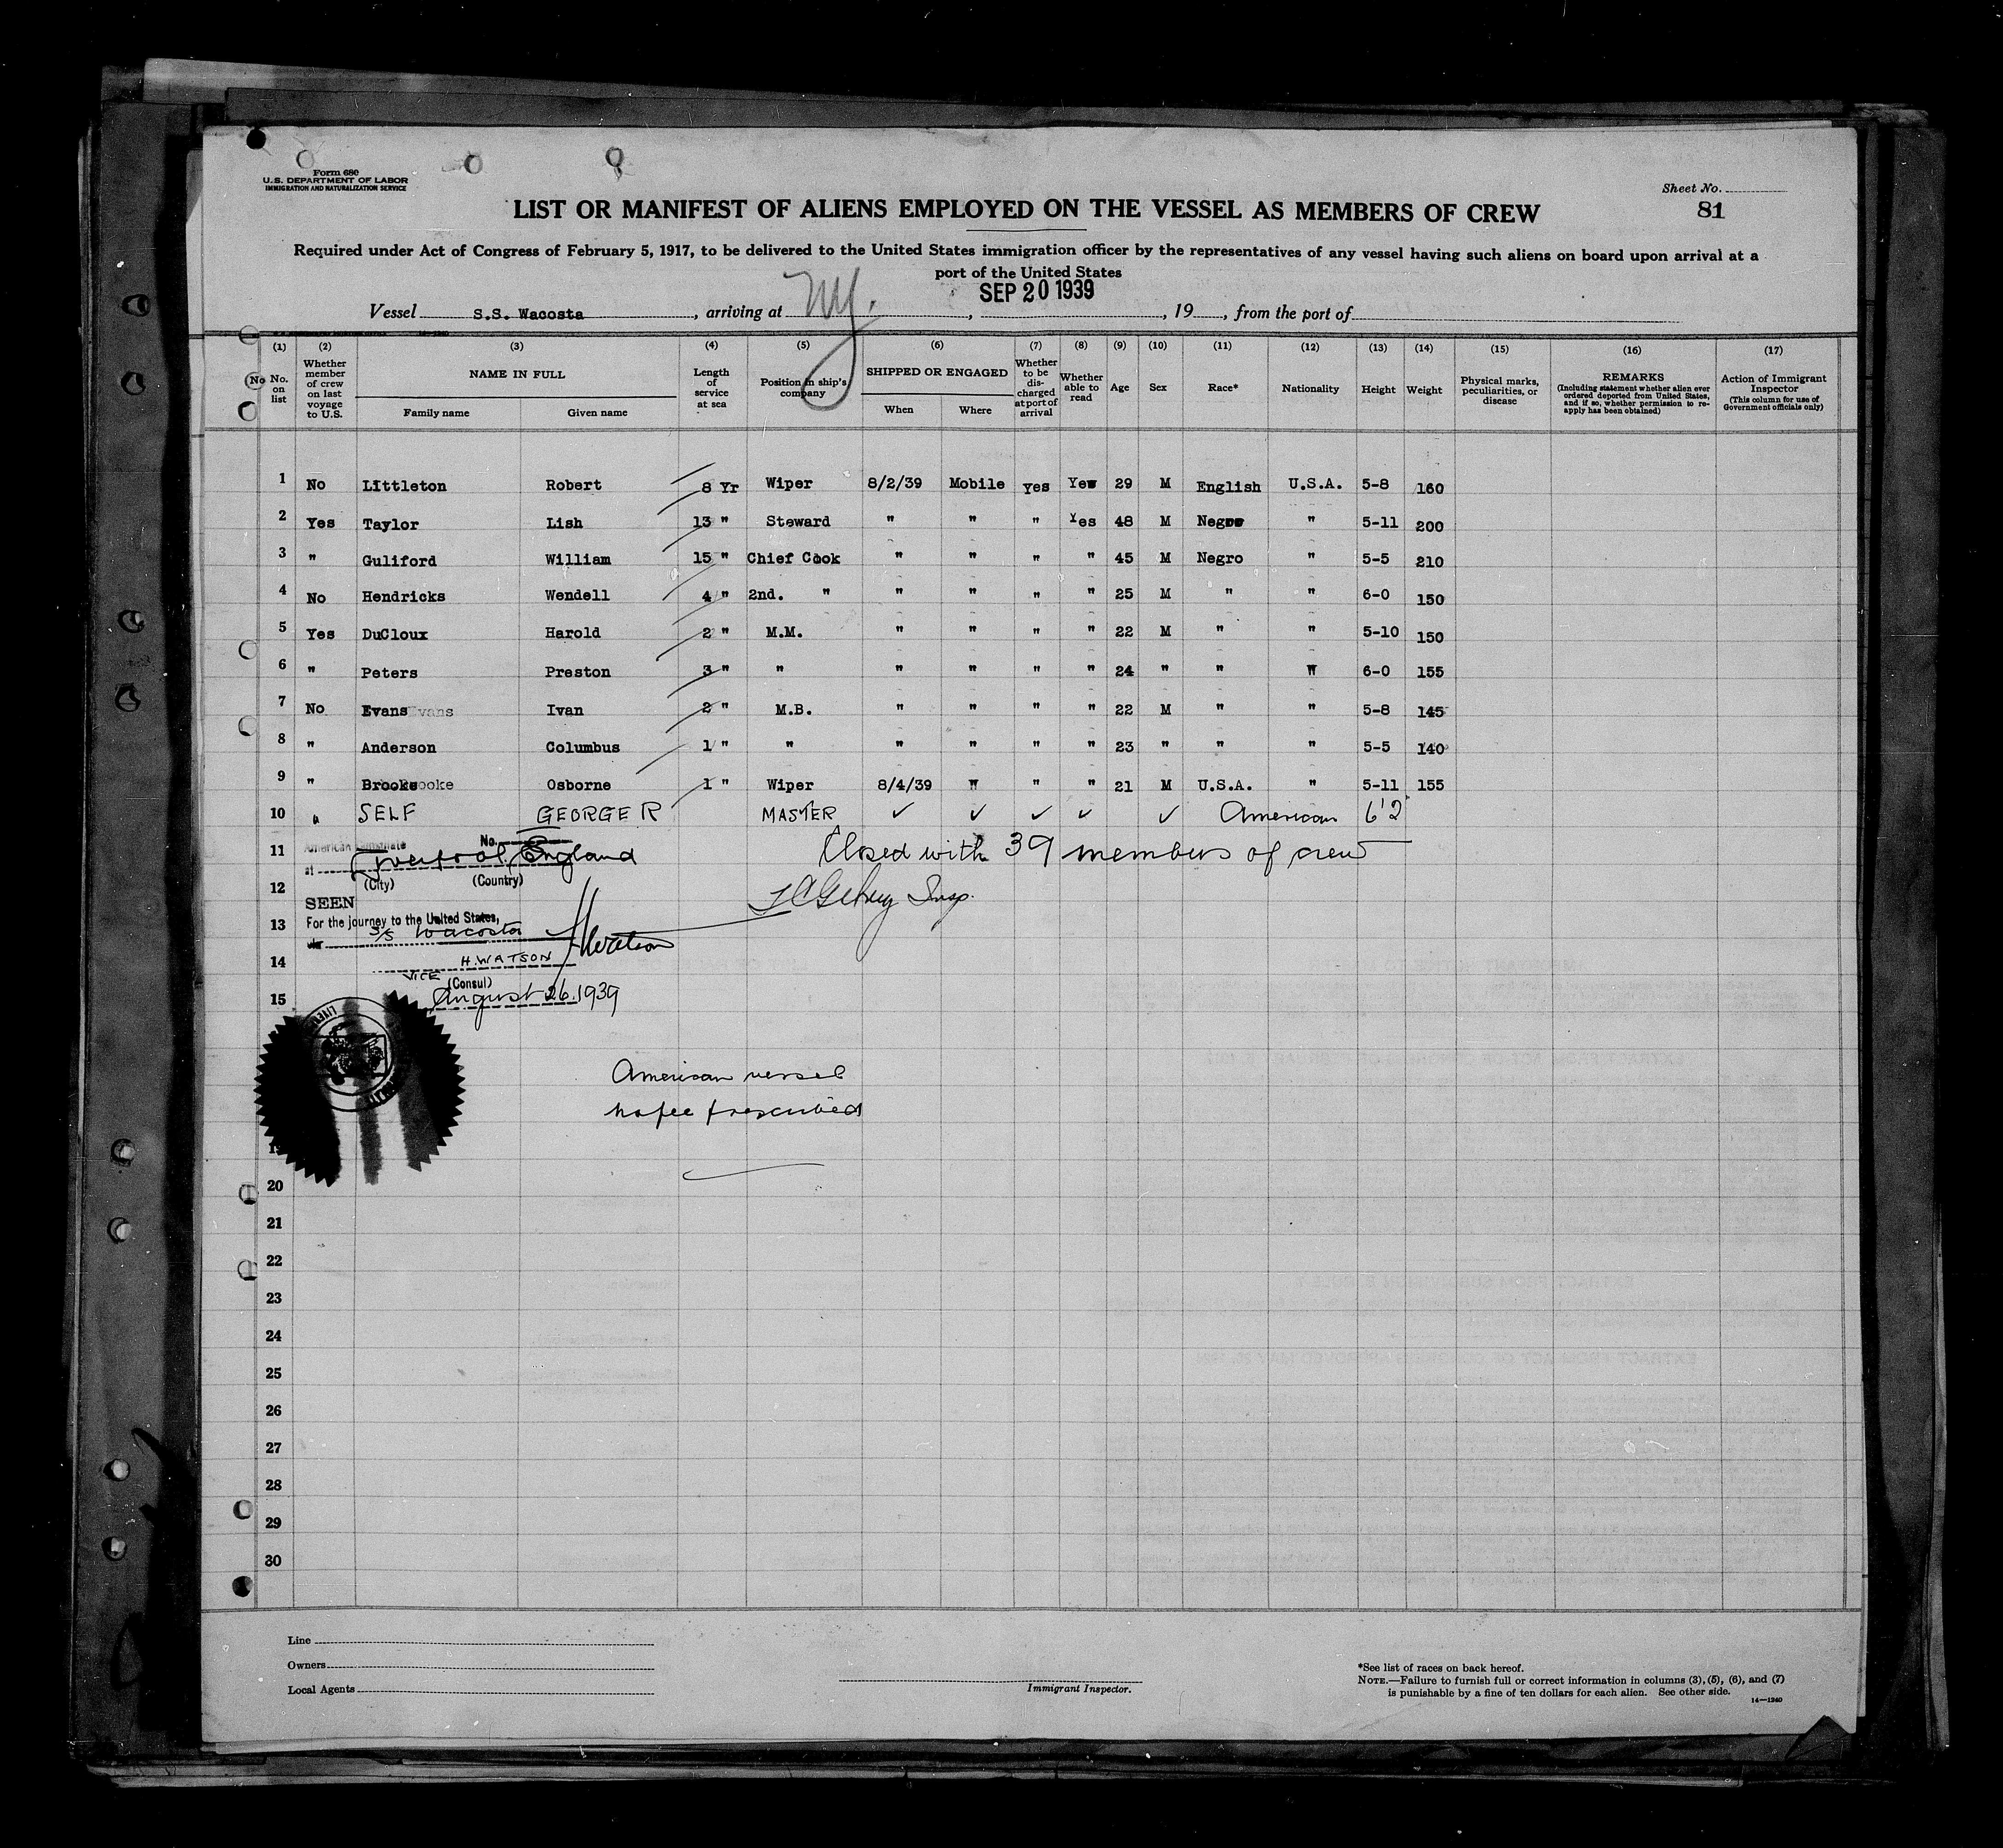 Form 680
U.S. DEPARTMENT OF LABOR
IMMIGRATION AND NATURALIZATION SERVICE
Sheet No.
81
LIST OR MANIFEST OF ALIENS EMPLOYED ON THE VESSEL AS MEMBERS OF CREW
Required under Act of Congress of February 5, 1917, to be delivered to the United States immigration officer by the representatives of any vessel having such aliens on board upon arrival at a
port of the United States
SEP 20 1939
Vessel S.S. Wacosta, arriving at N.Y., , 19 , from the port of
(1) (2) (3) (4) (5) (6) (7) (8) (9) (10) (11) (12) (13) (14) (15) (16) (17)
No. on list Whether member of crew on last voyage to U.S. NAME IN FULL Family name Given name Length of service at sea Position in ship's company SHIPPED OR ENGAGED When Where Whether to be discharged at port of arrival Whether able to read Age Sex Race* Nationality Height Weight Physical marks, peculiarities, or disease REMARKS (Including statement whether alien ever ordered deported from United States, and if so, whether permission to reapply has been obtained) Action of Immigrant Inspector (This column for use of Government officials only)
1 No Littleton Robert 8 Yr Wiper 8/2/39 Mobile Yes Yes 29 M English U.S.A. 5-8 160
2 Yes Taylor Lish 13 " Steward " " " Yes 48 M Negro " 5-11 200
3 " Guliford William 15 " Chief Cook " " " " 45 M Negro " 5-5 210
4 No Hendricks Wendell 4 " 2nd. " " " " " 25 M " " 6-0 150
5 Yes DuCloux Harold 2 " M.M. " " " " 22 M " " 5-10 150
6 " Peters Preston 3 " " " " " " 24 " " " 6-0 155
7 No Evans Ivan 2 " M.B. " " " " 22 M " " 5-8 145
8 " Anderson Columbus 1 " " " " " " 23 " " " 5-5 140
9 " Brooke Osborne 1 " Wiper 8/4/39 " " " 21 M U.S.A. " 5-11 155
10 " SELF GEORGE R MASTER ✓ ✓ ✓ ✓ ✓ American 6'2
American Consulate No.
11 at Liverpool, England Closed with 39 members of crew
(City) (Country)
12 Insp.
SEEN
13 For the journey to the United States,
S/S Wacosta HWatson
14 H. WATSON
VICE (Consul)
15 August 26, 1939
American vessel
no fee prescribed
19
20
21
22
23
24
25
26
27
28
29
30
Line
Owners
Local Agents
Immigrant Inspector.
*See list of races on back hereof.
NOTE.—Failure to furnish full or correct information in columns (3), (5), (6), and (7)
is punishable by a fine of ten dollars for each alien. See other side.
14—1240